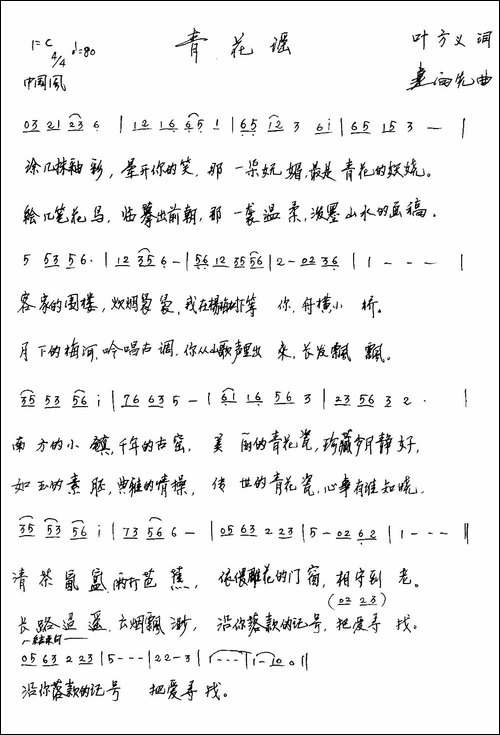 青花谣
1=C 4/4 ♩=80
叶方义 词
中国风
曲
03 21 23 6 | 12 16 65 1 | 65 12 3 6i | 65 15 3 — |
涂几抹釉彩，晕开你的笑，那一朵妩媚，最是青花的妖娆。
绘几笔花鸟，临摹出前朝，那一袭温柔，泼墨山水的画稿。
5 53 56· | 12 35 6 — | 56 12 35 56 | 2 — 02 36 | 1 - - - |
客家的围楼，炊烟袅袅，我在杨梅树下等你，舟横小桥。
月下的梅河，吟唱古调，你从山歌声里出来，长发飘飘。
35 53 56 i | 76 63 5 — | 61 16 56 3 | 23 56 3 2· |
南方的小镇，千年的古窑，美丽的青花瓷，珍藏岁月静好，
如玉的素胚，典雅的情操，传世的青花瓷，心事有谁知晓，
35 53 56 i | 73 56 6 — | 05 63 2 23 | 5 — 02 62 | 1 - - - ||
清茶氤氲，雨打芭蕉，依偎雕花的门窗，相守到老。
(02 23)
长路迢遥，云烟飘渺，沿你落款的记号，把爱寻找。
结束句
05 63 2 23 | 5 - - - | 2 2 - 3 | 1 - - - | 1 - 10 0 ||
沿你落款的记号 把爱寻找。